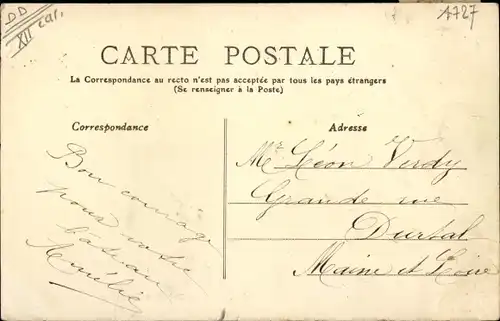 DD
XII car.
1727
CARTE POSTALE
La Correspondance au recto n'est pas acceptée par tous les pays étrangers
(Se renseigner à la Poste)
Correspondance
Bon courage
pour votre
bateau
Amélie
Adresse
Mr Léon Verdy
Grande rue
Durtal
Maine et Loire